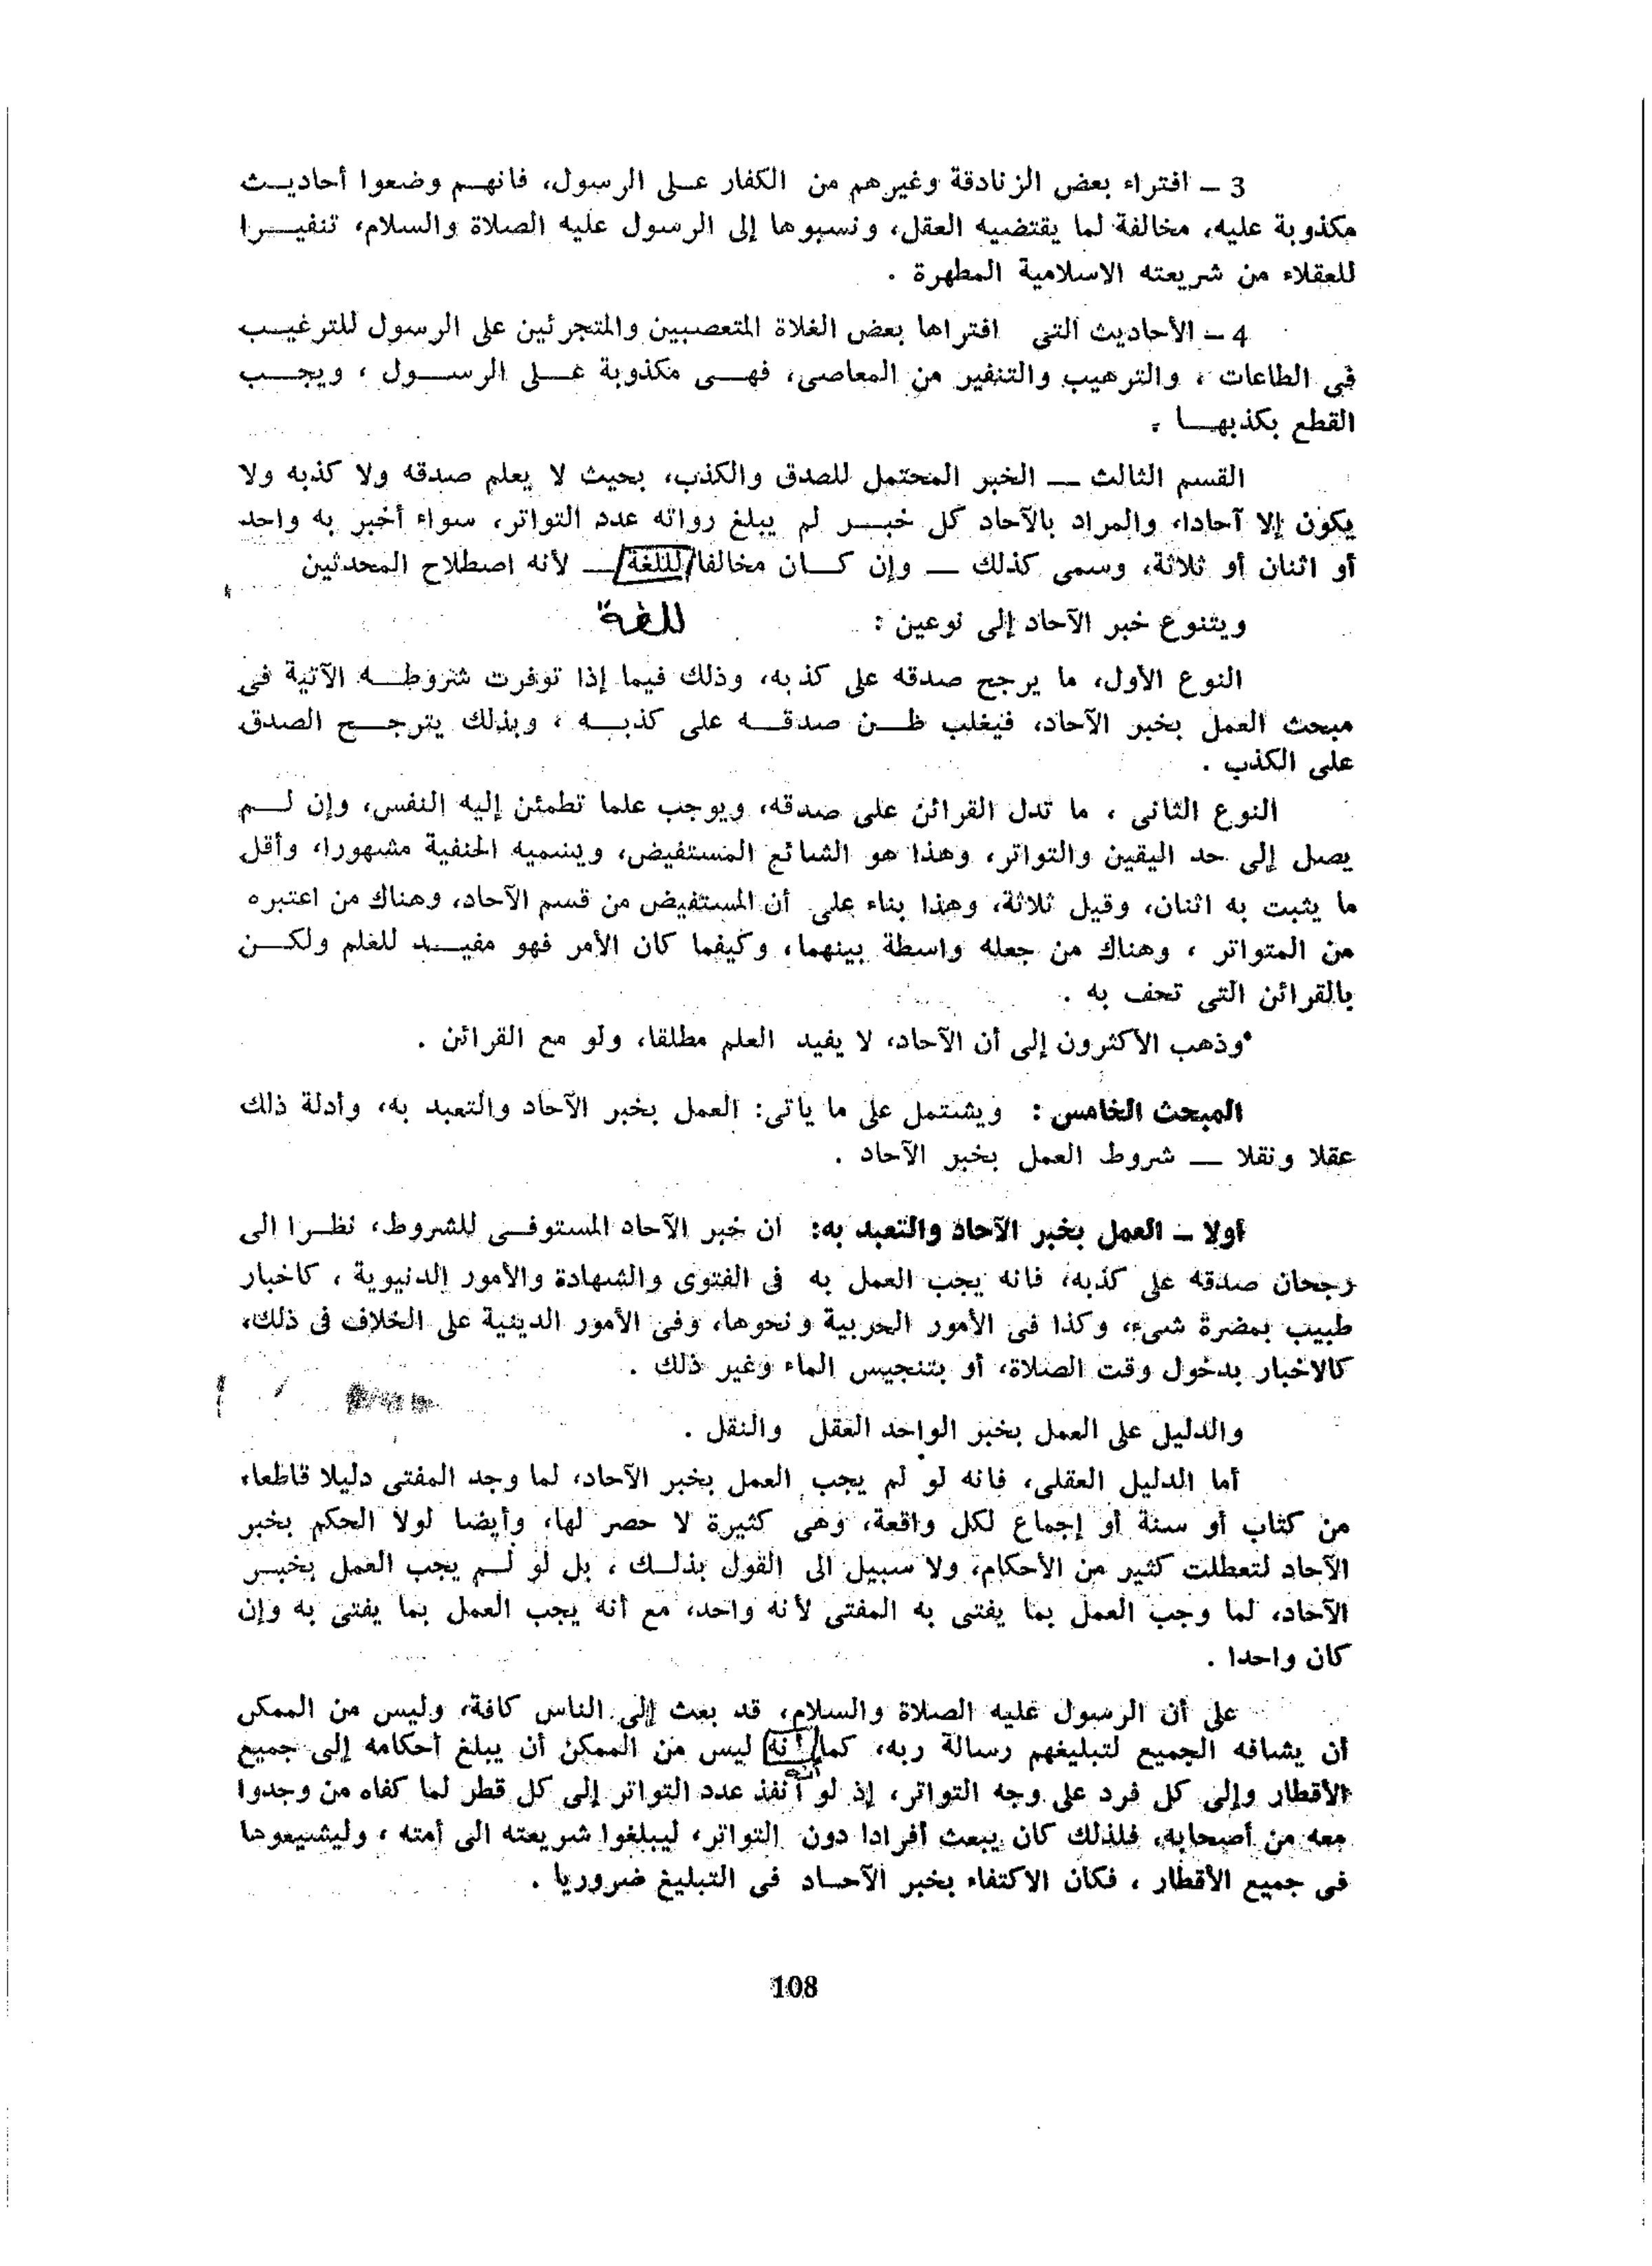 3 – افتراء بعض الزنادقة وغيرهم من الكفار على الرسول، فانهم وضعوا أحاديث
مكذوبة عليه، مخالفة لما يقتضيه العقل، ونسبوها إلى الرسول عليه الصلاة والسلام، تنفيرا
للعقلاء من شريعته الاسلامية المطهرة .
4 – الأحاديث التى افتراها بعض الغلاة المتعصبين والمتجرئين على الرسول للترغيب
فى الطاعات ، والترهيب والتنفير من المعاصى، فهى مكذوبة على الرسول ، ويجب
القطع بكذبها .
القسم الثالث — الخبر المحتمل للصدق والكذب، بحيث لا يعلم صدقه ولا كذبه ولا
يكون إلا آحادا، والمراد بالآحاد كل خبر لم يبلغ رواته عدد التواتر، سواء أخبر به واحد
أو اثنان أو ثلاثة، وسمى كذلك — وإن كان مخالفا/لللغة/— لأنه اصطلاح المحدثين
ويتنوع خبر الآحاد إلى نوعين : للغة
النوع الأول، ما يرجح صدقه على كذبه، وذلك فيما إذا توفرت شروطه الآتية فى
مبحث العمل بخبر الآحاد، فيغلب ظن صدقه على كذبه ، وبذلك يترجح الصدق
على الكذب .
النوع الثانى ، ما تدل القرائن على صدقه، ويوجب علما تطمئن إليه النفس، وإن لم
يصل إلى حد اليقين والتواتر، وهذا هو الشائع المستفيض، ويسميه الحنفية مشهورا، وأقل
ما يثبت به اثنان، وقيل ثلاثة، وهذا بناء على أن المستفيض من قسم الآحاد، وهناك من اعتبره
من المتواتر ، وهناك من جعله واسطة بينهما، وكيفما كان الأمر فهو مفيد للعلم ولكن
بالقرائن التى تحف به .
وذهب الأكثرون إلى أن الآحاد، لا يفيد العلم مطلقا، ولو مع القرائن .
المبحث الخامس : ويشتمل على ما ياتى: العمل بخبر الآحاد والتعبد به، وأدلة ذلك
عقلا ونقلا — شروط العمل بخبر الآحاد .
أولا – العمل بخبر الآحاد والتعبد به: ان خبر الآحاد المستوفى للشروط، نظرا الى
رجحان صدقه على كذبه، فانه يجب العمل به فى الفتوى والشهادة والأمور الدنيوية ، كاخبار
طبيب بمضرة شىء، وكذا فى الأمور الحربية ونحوها، وفى الأمور الدينية على الخلاف فى ذلك،
كالاخبار بدخول وقت الصلاة، أو بتنجيس الماء وغير ذلك .
والدليل على العمل بخبر الواحد العقل والنقل .
أما الدليل العقلى، فانه لو لم يجب العمل بخبر الآحاد، لما وجد المفتى دليلا قاطعا،
من كتاب أو سنة أو إجماع لكل واقعة، وهى كثيرة لا حصر لها، وأيضا لولا الحكم بخبر
الآحاد لتعطلت كثير من الأحكام، ولا سبيل الى القول بذلك ، بل لو لم يجب العمل بخبر
الآحاد، لما وجب العمل بما يفتى به المفتى لأنه واحد، مع أنه يجب العمل بما يفتى به وإن
كان واحدا .
على أن الرسول عليه الصلاة والسلام، قد بعث إلى الناس كافة، وليس من الممكن
أن يشافه الجميع لتبليغهم رسالة ربه، كما/انه/ ليس من الممكن أن يبلغ أحكامه إلى جميع
الأقطار وإلى كل فرد على وجه التواتر، إذ لو أنفذ عدد التواتر إلى كل قطر لما كفاه من وجدوا
معه من أصحابه، فلذلك كان يبعث أفرادا دون التواتر، ليبلغوا شريعته الى أمته ، وليشيعوها
فى جميع الأقطار ، فكان الاكتفاء بخبر الآحاد فى التبليغ ضروريا .
108